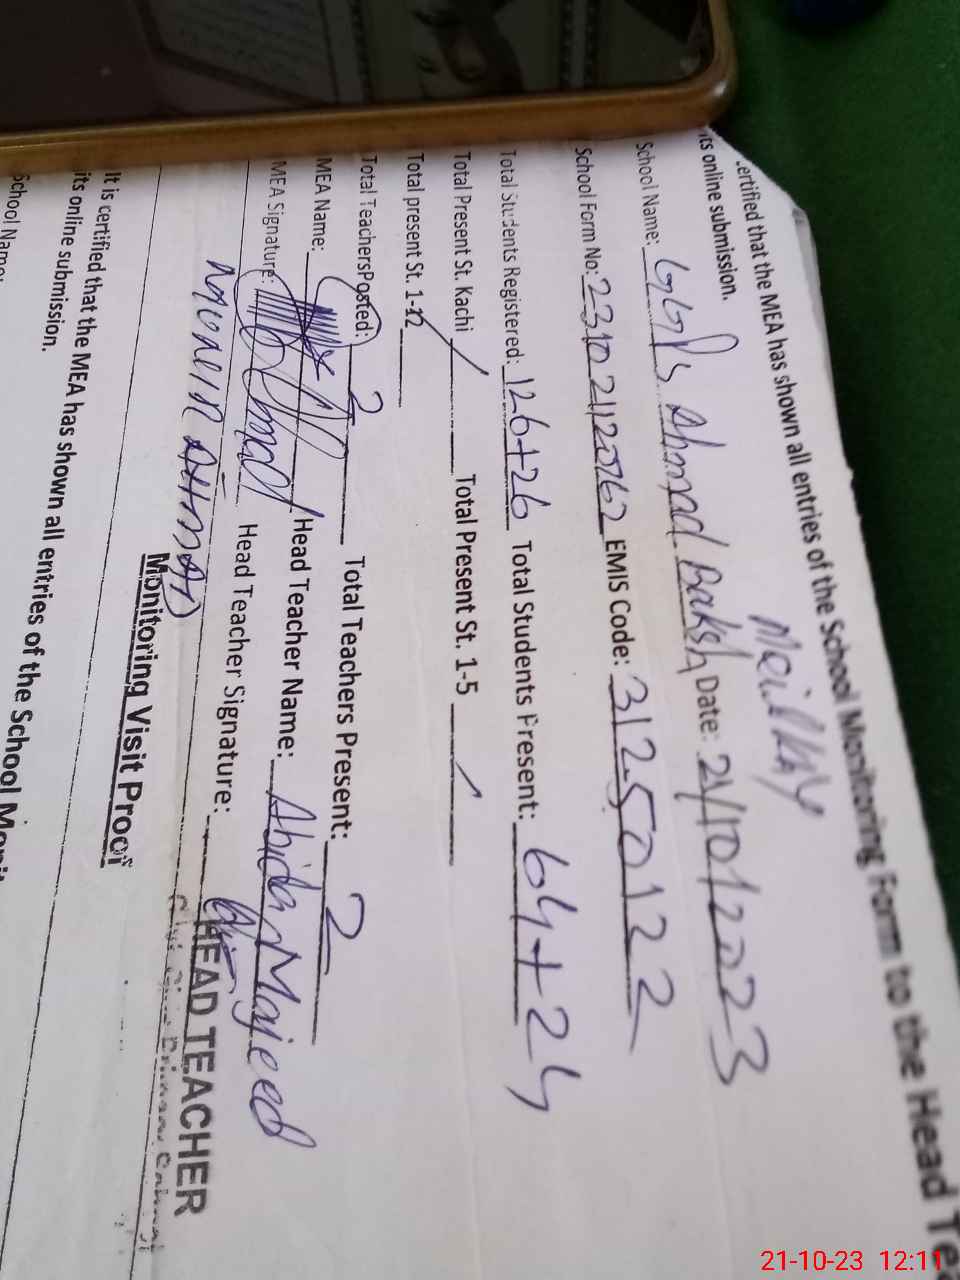 Monitoring Form to the Head Tea
.ertified that the MEA has shown all entries of the School
its online submission.
School Name: GGPS Ahmad Baksh Date: 21/10/2023
School Form No: EMIS Code: 31250122
Total Students Registered: 126+26 Total Students Present: 64+24
Total Present St. Kachi / Total Present St. 1-5 /
Total present St. 1-12
Total TeachersPosted: 2 Total Teachers Present: 2
MEA Name: Head Teacher Name: Abida Majeed
MEA Signature: Ahmad Head Teacher Signature:
AHMAD
HEAD TEACHER
Monitoring Visit Proof
It is certified that the MEA has shown all entries of the School Monit
its online submission.
School Name:
21-10-23 12:11